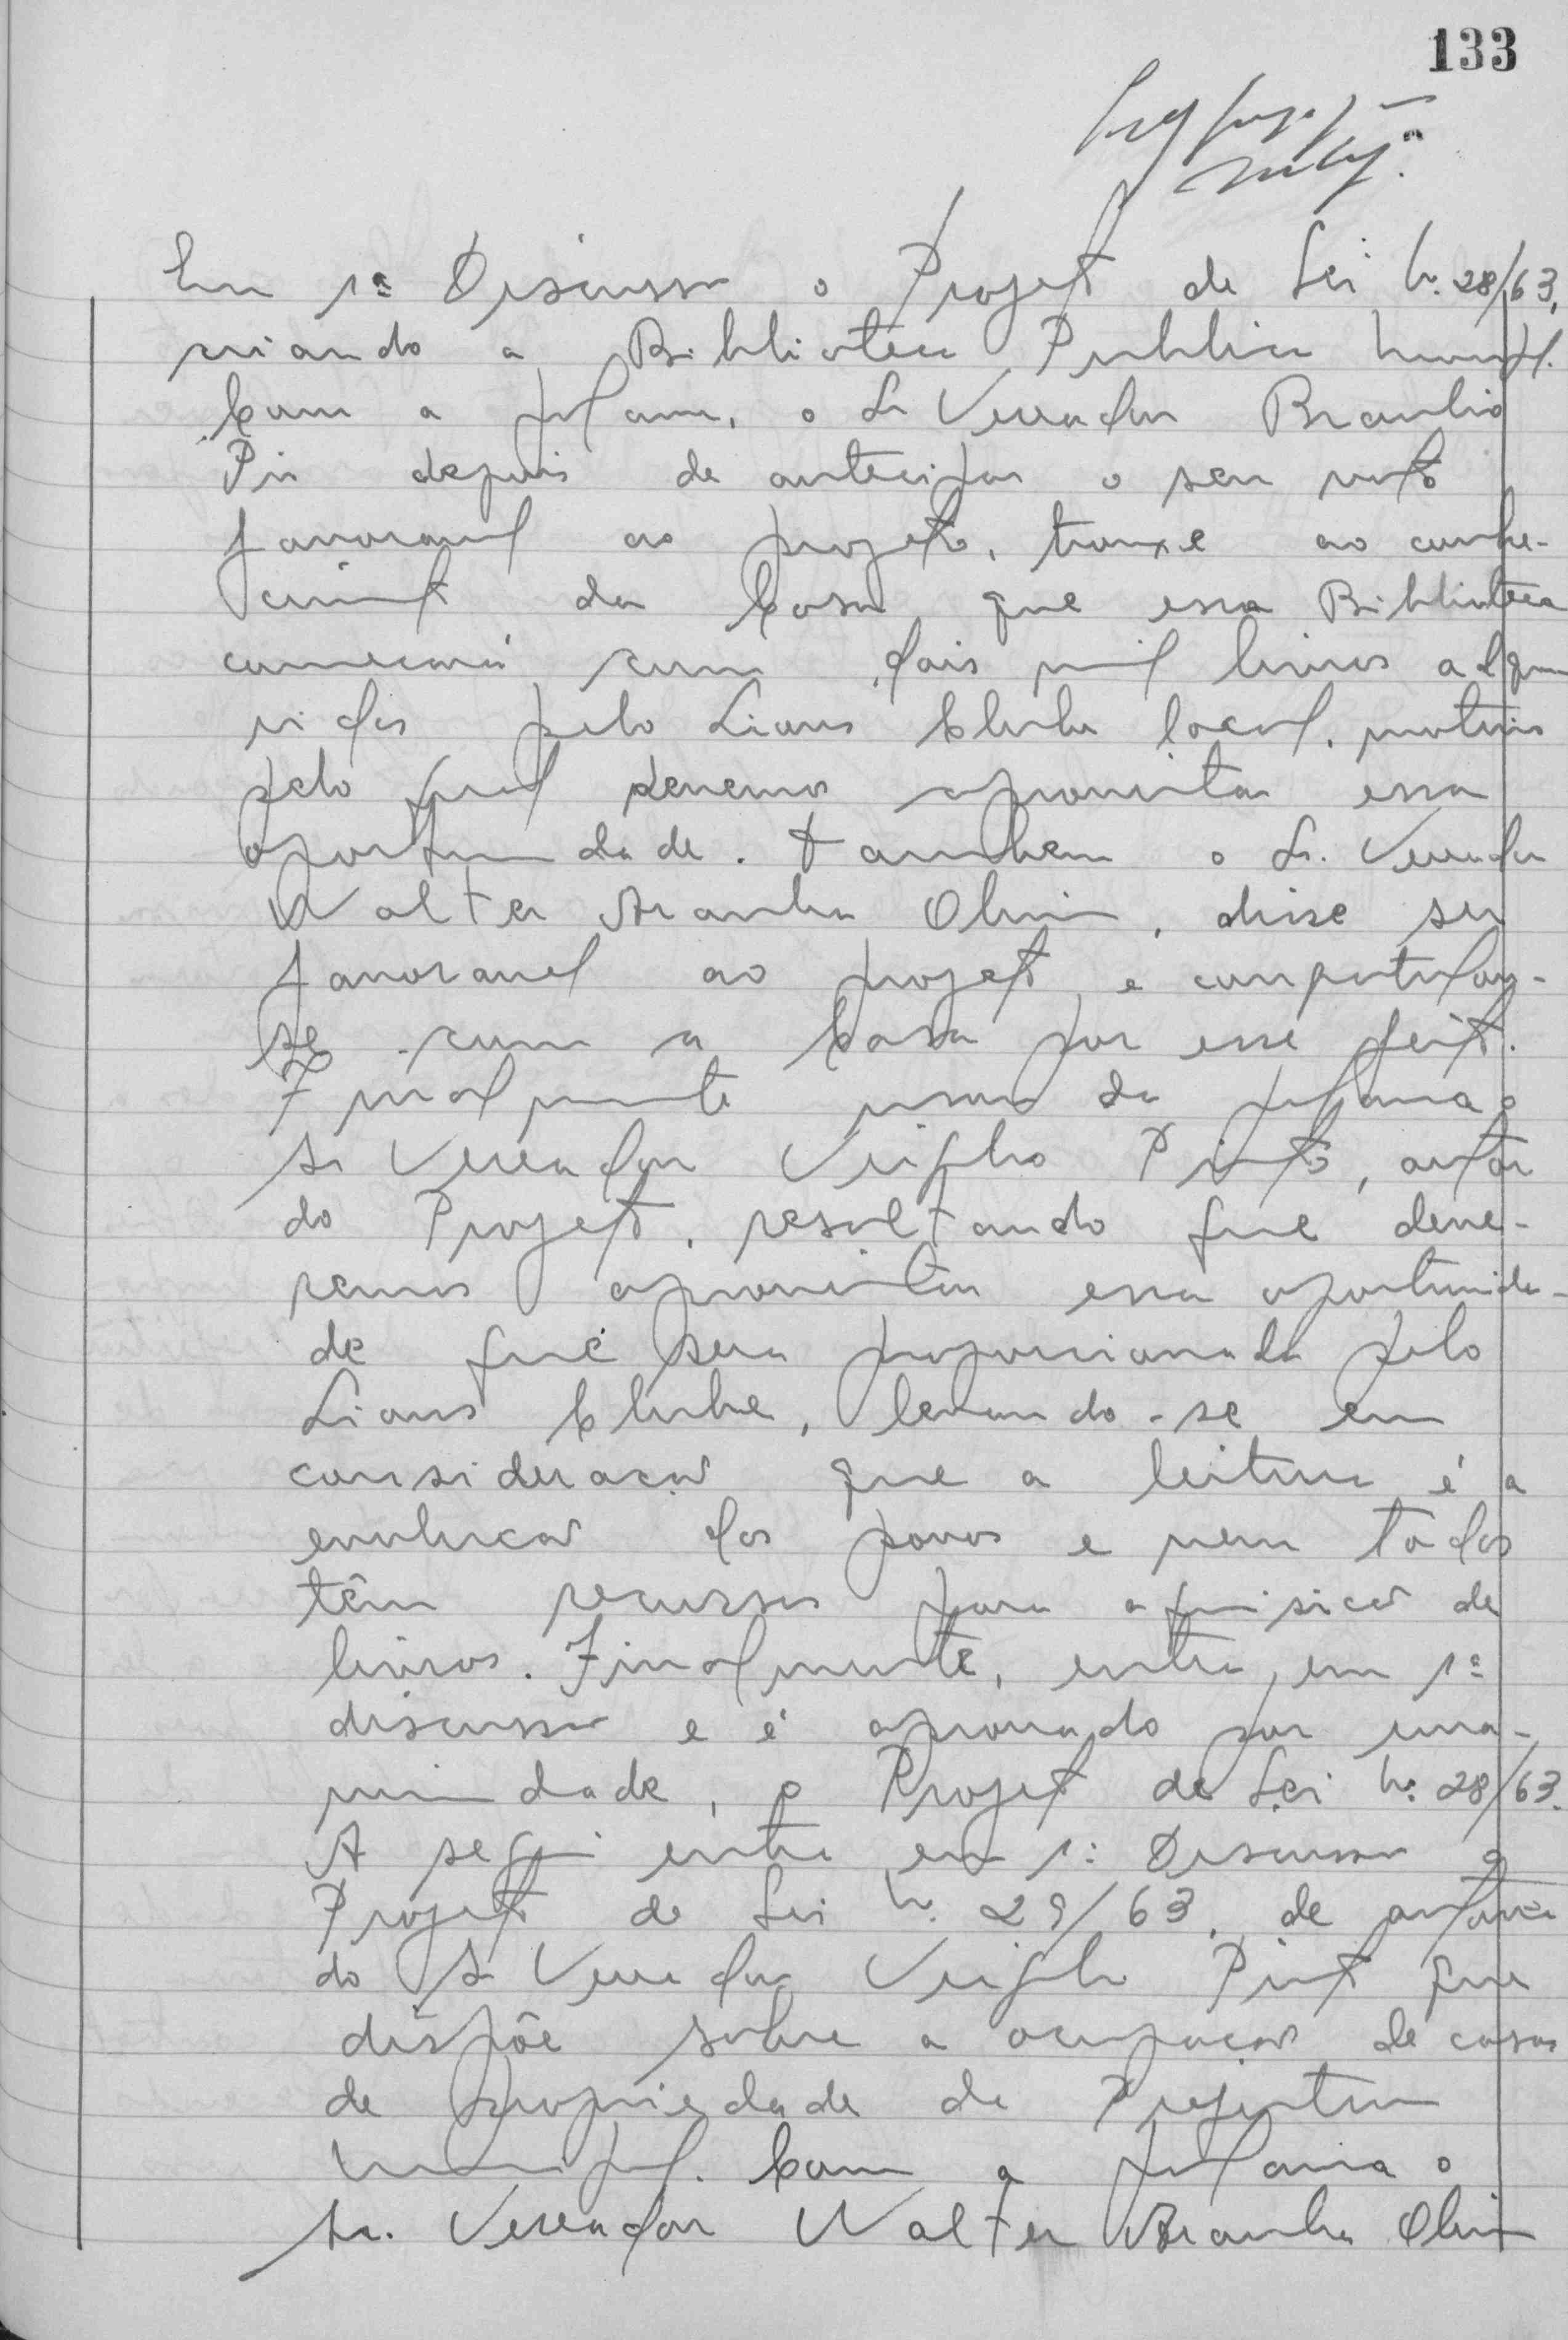 133
Em 1ª Discussão o Projeto de Lei nº 28/63,
criando a Biblioteca Publica Municipal.
Com a palavra, o Sr Vereador Braulio
Pio depois de antecipar o seu voto
favoravel ao projeto, trouxe ao conhe-
cimento da Casa que essa Biblioteca
começará com dois mil livros adqui
ridos pelo Lions Clube local, motivo
pelo qual devemos aproveitar essa
oportunidade. Tambem o Sr. Vereador
Walter Aranha Olivi, disse ser
favoravel ao projeto e congratulou-
se com a Casa por esse feito.
Finalmente usou da palavra o
Sr Vereador Virgilio Pinto, autor
do Projeto, resultando que deve-
remos aproveitar essa oportunida-
de que sera proporcionada pelo
Lions Clube, levando-se em
consideração que a leitura é a
evolução dos povos e nem todos
têm recursos para aquisição de
livros. Finalmente, entra em 1ª
discussão e é aprovado por una-
nimidade, o Projeto de Lei nº 28/63.
A seguir entra em 1ª Discussão o
Projeto de Lei nº 29/63, de autoria
do Sr Vereador Virgilio Pinto que
dispõe sobre a ocupação de casas
de propriedade da Prefeitura
Municipal. Com a palavra o
Sr. Vereador Walter Aranha Olivi